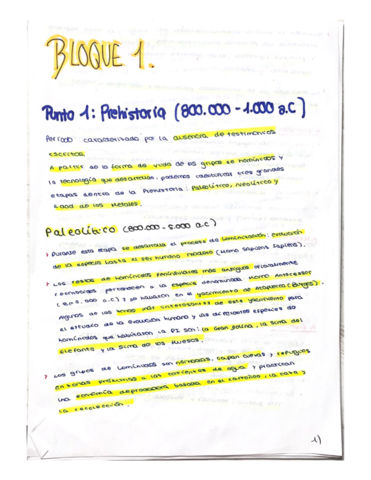 BLOQUE 1.
Punto 1: Prehistoria (800.000 - 1.000 a.C)
Período caracterizado por la ausencia de testimonios
escritos.
A partir de la forma de vida de los grupos de homínidos y
la tecnología que desarrollan, podemos clasificar tres grandes
etapas dentro de la Prehistoria: Paleolítico, Neolítico y
Edad de los Metales.
Paleolítico (800.000 - 5.000 a.C)
> Durante esta etapa se desarrolla el proceso de hominización: evolución
de la especie hasta el ser humano moderno (Homo Sapiens Sapiens).
> Los restos de homínidos peninsulares más antiguos oficialmente
reconocidos pertenecen a la especie denominada Homo Antecesor
a.C) y se hallaron en el yacimiento de Atapuerca (Burgos).
Algunas de las zonas más interesantes de este yacimiento para
el estudio de la evolución humana y las diferentes especies de
homínidos que habitaron la PI son: la Gran Dolina, la Sima del
Elefante y la Sima de los Huesos.
> Los grupos de homínidos son nómadas, ocupan cuevas y refugios
en zonas próximas a las corrientes de agua y practican
una economía depredadora basada en el carroñeo, la caza y
la recolección.
1)